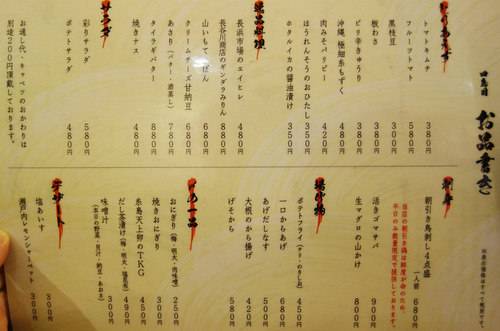 四季目 お品書き
※表示価格はすべて税別です。
とりあえず
トマトキムチ 380円
フルーツトマト 580円
黒枝豆 300円
板わさ 380円
ピリ辛きゅうり 380円
沖縄 極細糸もずく 480円
肉みそパリピー 420円
ほうれんそうのおひたし 350円
ホタルイカの醤油漬け 350円
逸品料理
長浜市場のエイヒレ 480円
長谷川商店のギンダラみりん 880円
クリームチーズ甘納豆 680円
山いもてっぱん 680円
あさり(バター・酒蒸し) 780円
タイラギバター 880円
焼きナス 480円
サラダ
彩りサラダ 580円
ポテトサラダ 480円
お通し代・キャベツのおかわりは
別途200円頂戴しております。
刺身
朝引き鳥刺し4点盛 一人前 680円
当店の朝引き鶏は鮮度が命のため、
平日のみ数量限定で提供しております。
活きゴマサバ 900円
生マグロの山かけ 800円
揚げ物
ポテトフライ(ノリ・のりしお) 450円
一口からあげ 680円
あげだしなす 400円
大根のから揚げ 420円
げそから 580円
〆の一品
おにぎり(梅・明太・肉味噌) 250円
焼きおにぎり 300円
糸島天上卵のTKG 450円
だし茶漬け(梅・明太・塩昆布) 490円
味噌汁 300円
(本日の野菜・貝汁・納豆・あおさ)
デザート
塩あいす 300円
瀬戸内レモンシャーベット 300円